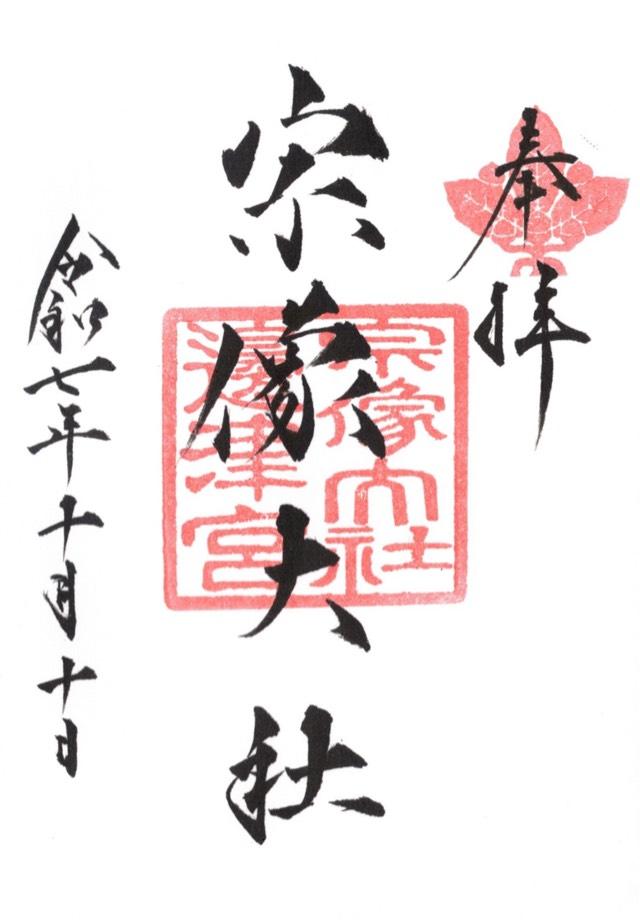 奉拝
宗像大社
宗像大社
邊津宮
令和七年十月十日